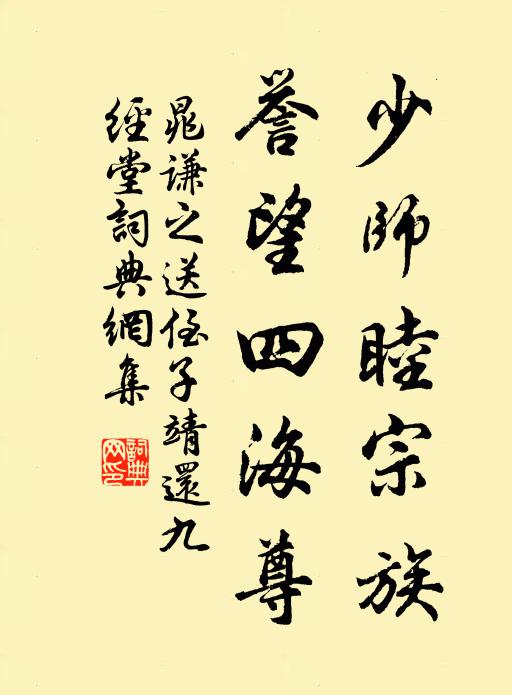 少師睦宗族
誉望四海尊
晁謙之送侄子靖還九
經堂詞典網集
詞典
网印